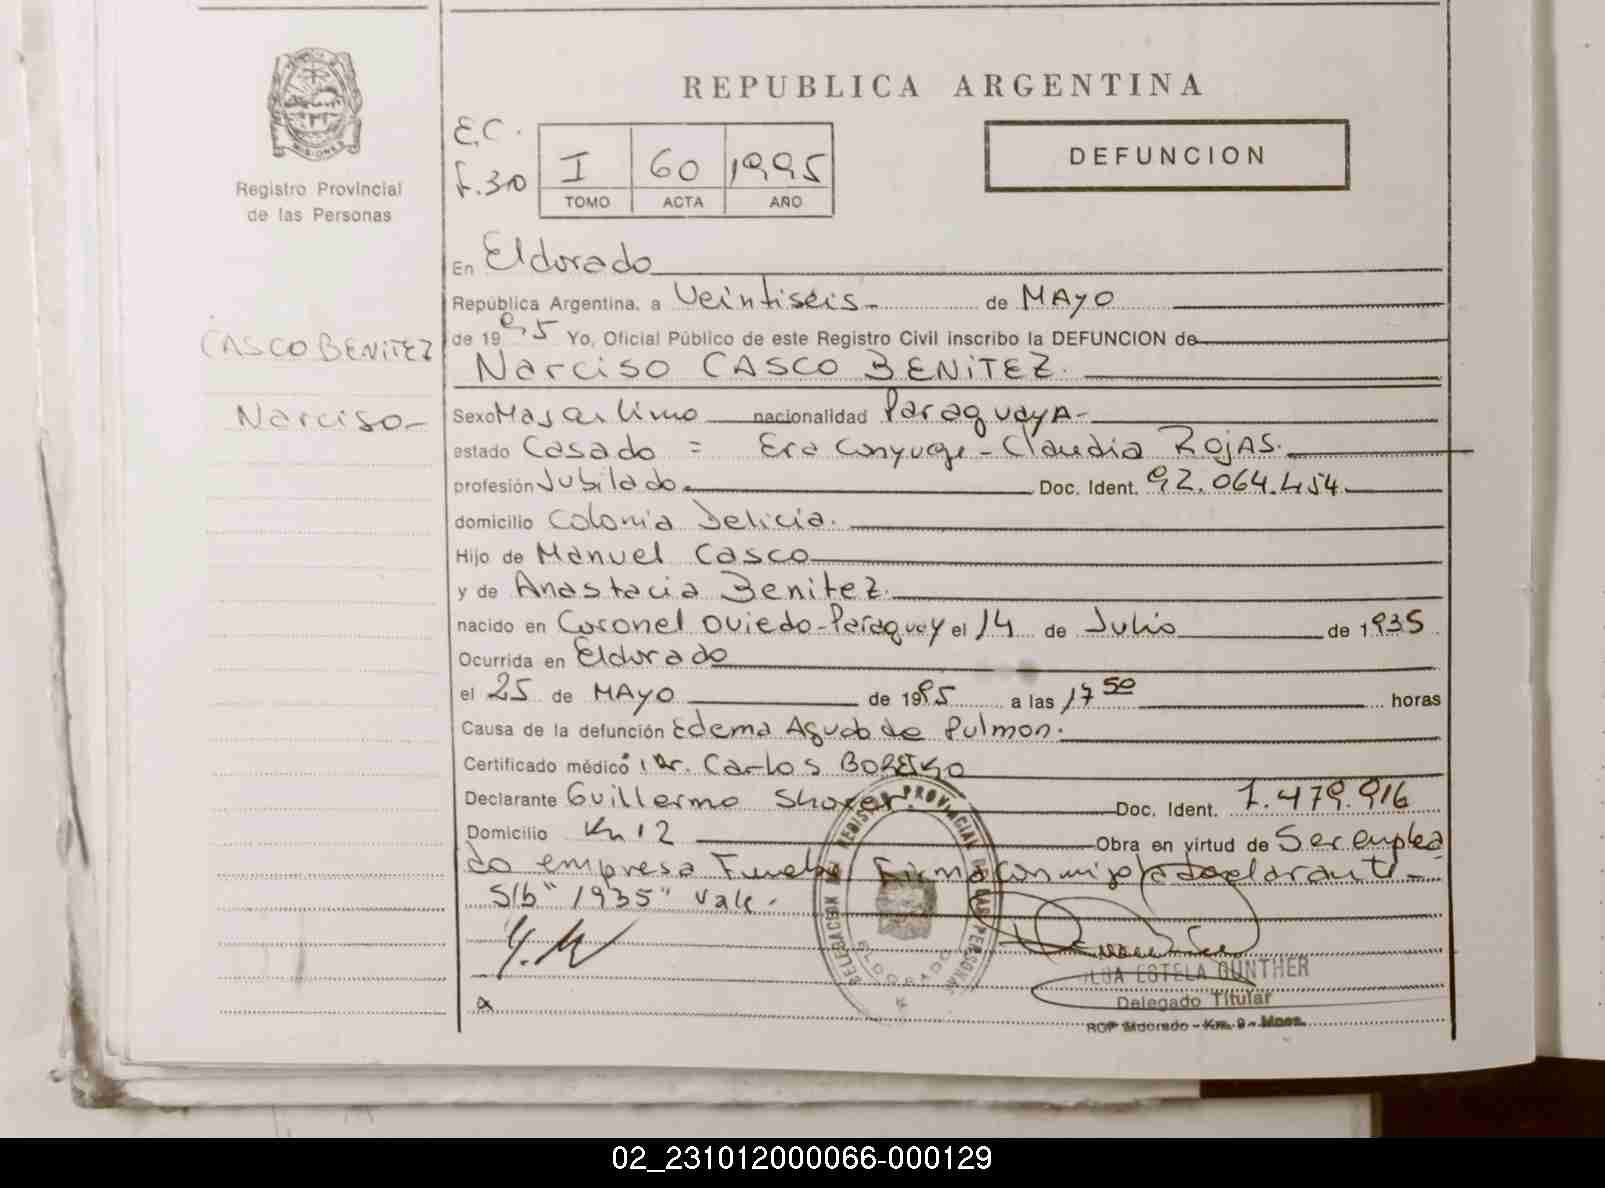 REPUBLICA ARGENTINA
MISIONES
Registro Provincial
de las Personas
E.C.
f. 30
I 60 1995
TOMO ACTA AÑO
DEFUNCION
En Eldorado
República Argentina, a Veintiseis- de MAYO
de 1995 Yo, Oficial Público de este Registro Civil inscribo la DEFUNCION de
CASCO BENITEZ
Narciso CASCO BENITEZ.
Narciso-
Sexo Masculino nacionalidad Paraguaya-
estado Casado = Era Conyuge - Claudia ROJAS.
profesión Jubilado. Doc. Ident. 92.064.454.
domicilio Colonia Delicia.
Hijo de Manuel Casco
y de Anastacia Benitez.
nacido en Coronel Oviedo-Paraguay el 14 de Julio de 1935
Ocurrida en Eldorado
el 25 de MAYO de 1995 a las 17 50 horas
Causa de la defunción Edema Agudo de Pulmon.
Certificado médico: Dr. Carlos
Declarante Guillermo Doc. Ident. 7.479.916
Domicilio Km 12 Obra en virtud de Ser emplea
do empresa Funebre Firma Conmigo el declarante-
S/b "1935" Vale.
DELEGACION REGISTRO PROVINCIAL DE LAS PERSONAS
ELDORADO
GUNTHER
Delegado Titular
RCP Eldorado - Km. 9 - Mnes.
02_231012000066-000129